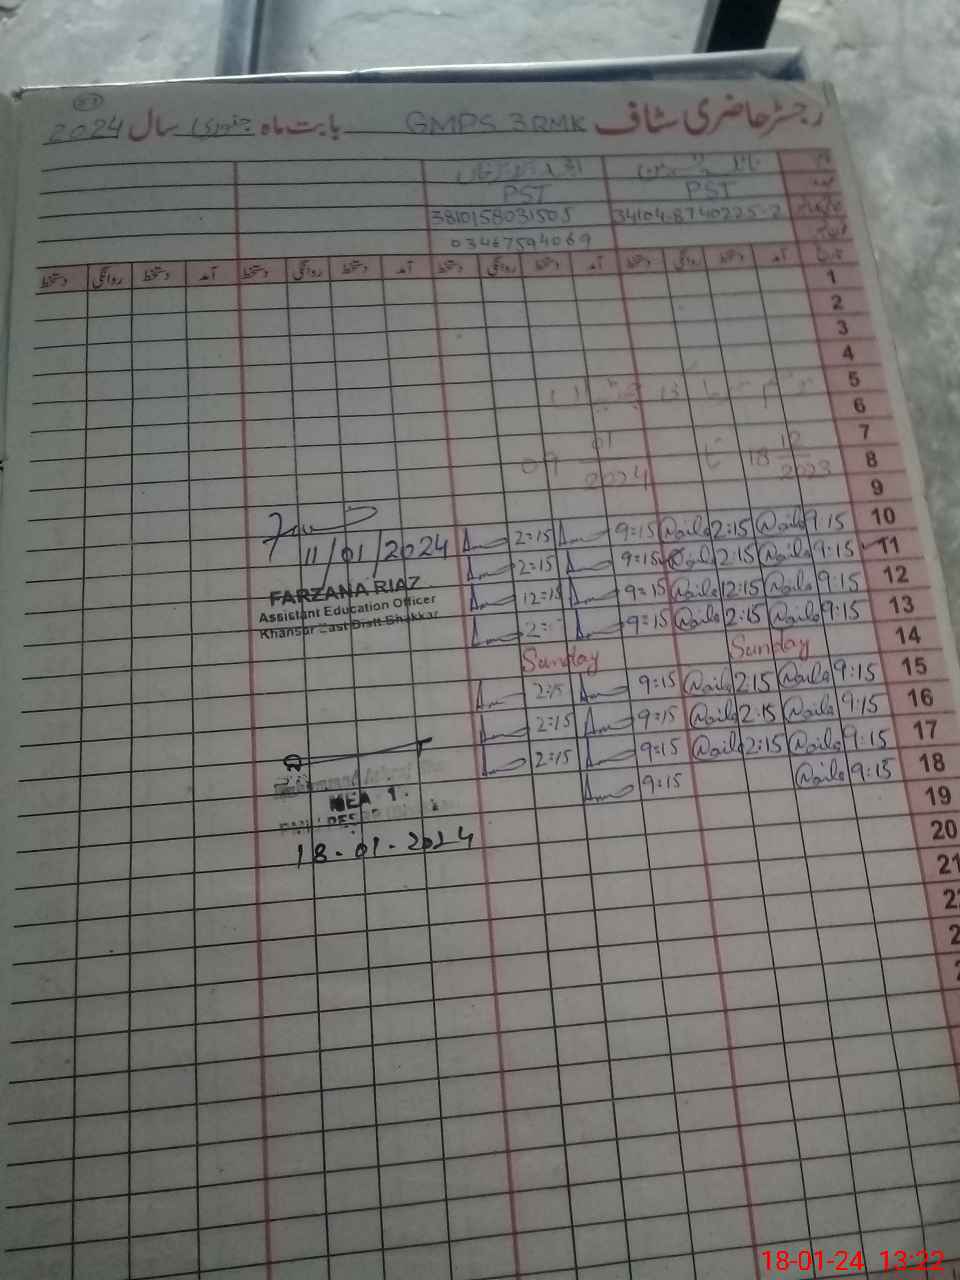 رجسٹر حاضری سٹاف GMPS 3RMK بابت ماہ جنوری سال 2024
PST PST
34104-8740225-2 3810158031505
03467594069
آمد دستخط روانگی دستخط آمد دستخط روانگی دستخط آمد دستخط روانگی دستخط
1
2
3
4
5
6
7
8 18 12 2023 تا 09 01 2024
9
10 9:15 Naila 2:15 Naila 9:15 2:15
11 9:15 Naila 2:15 Naila 9:15 2:15
12 9:15 Naila 12:15 Naila 9:15 12:15
13 9:15 Naila 2:15 Naila 9:15
14 Sunday Sunday
15 9:15 Naila 2:15 Naila 9:15 2:15
16 9:15 Naila 2:15 Naila 9:15 2:15
17 9:15 Naila 2:15 Naila 9:15 2:15
18 9:15 Naila 9:15
19
20
21
11/01/2024
FARZANA RIAZ
Assistant Education Officer
Khansar East Distt Bhakkar
MEA 1
18-01-2024
18-01-24 13:22